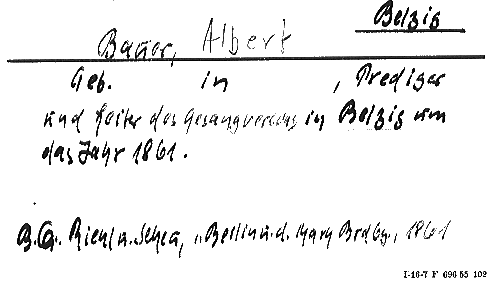 Belzig
Bauer, Albert
Geb. in , Prediger
und Leiter des Gesangvereins in Belzig um
das Jahr 1861.
B.G. Riehl u. Scheu, „Berlin u. d. Mark Brdbg., 1861
I-16-7 F 696 55 102